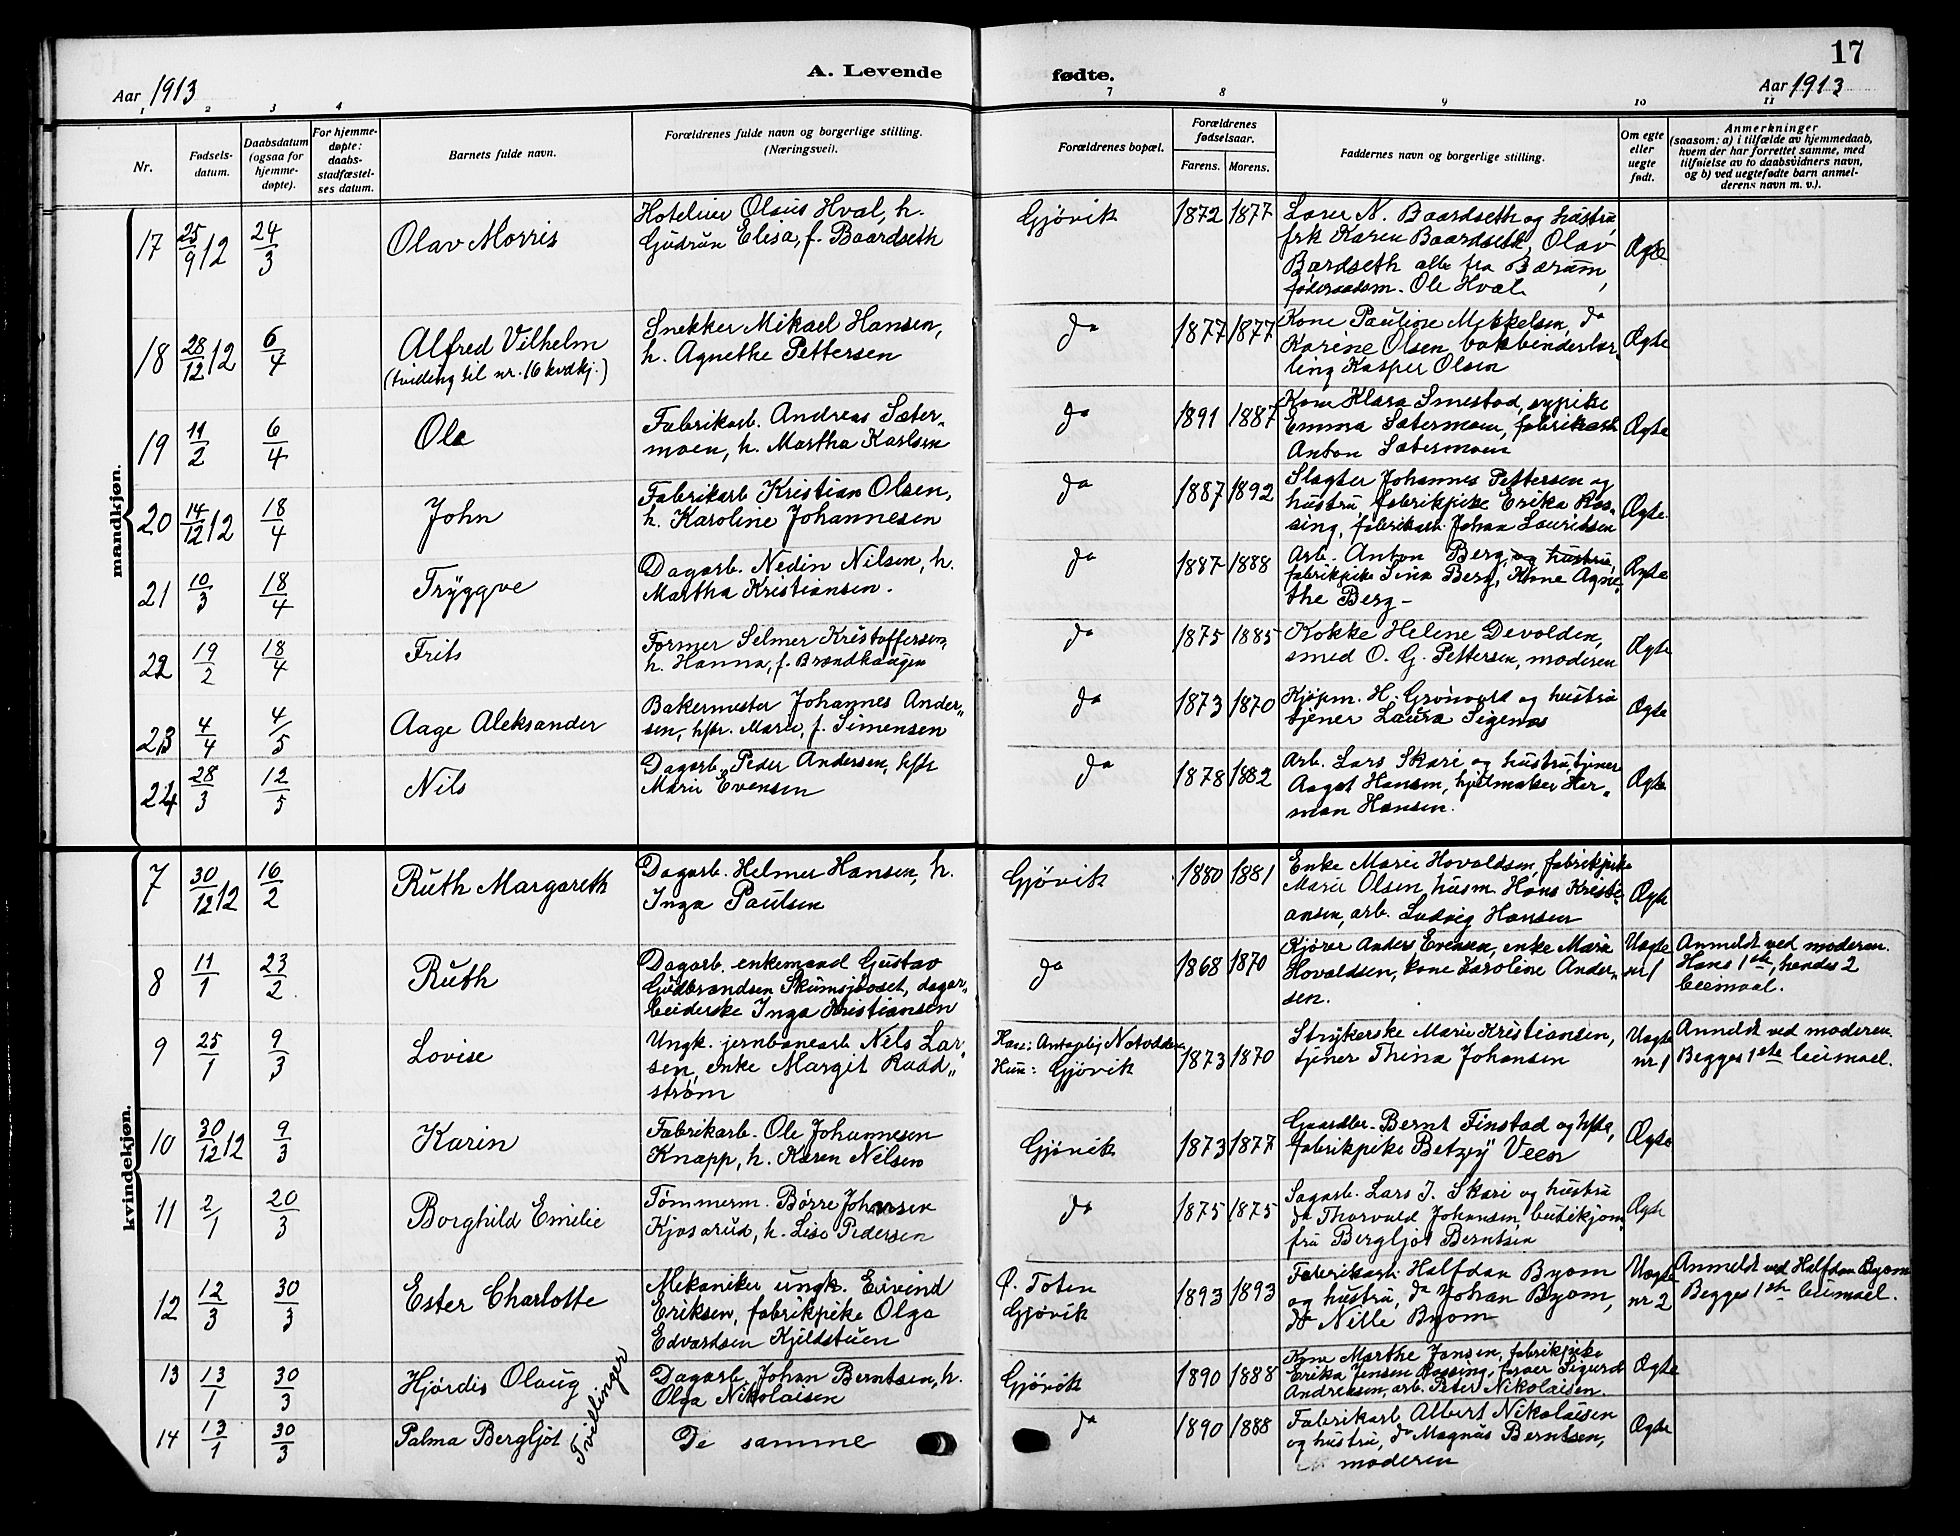 17
A. Levende fødte.
Aar 1913
Aar 1913
1 2 3 4 7 8 9 10 11
Nr.
Fødsels-
datum.
Daabsdatum
(ogsaa for
hjemme-
døpte).
For hjemme-
døpte:
daabs-
stadfæstel-
ses datum.
Barnets fulde navn.
Forældrenes fulde navn og borgerlige stilling.
(Næringsvei).
Forældrenes bopæl.
Forældrenes
fødselsaar.
Farens. Morens.
Faddernes navn og borgerlige stilling.
Om egte
eller
uegte
født.
Anmerkninger
(saasom: a) i tilfælde av hjemmedaab,
hvem der har forrettet samme, med
tilføielse av to daabsvidners navn,
og b) ved uegtefødte barn anmel-
derens navn m. v.).
mandkjøn.
17 25/9 12 24/3 Olav Morris
Hotelier Olaus Hval, h.
Gudrun Elisa, f. Baardseth
Gjøvik 1872 1877
Lærer N. Baardseth og hustru,
frk Karen Baardseth, Olav
Bardseth alle fra Bærum,
føderaadsm. Ole Hval
Ægte
18 28/12 12 6/4 Alfred Vilhelm
(tvilling til nr. 16 kvdkj.)
Snekker Mikael Hansen,
h. Agnethe Pettersen
do 1877 1877
Kone Pauline Mikkelsen, do
Karine Olsen, bokbinderlær-
ling Kasper Olsen
Ægte
19 11/2 6/4 Ole
Fabrikarb. Andreas Sæter-
moen, h. Martha Karlsen
do 1891 1887
Kone Klara Smestad, sypike
Emma Sætermoen, fabrikarb
Anton Sætermoen
Ægte
20 14/12 12 18/4 John
Fabrikarb Kristian Olsen,
h. Karoline Johannesen
do 1887 1892
Slagter Johannes Pettersen og
hustru, fabrikpike Erika Ros-
sing, fabrikarb. Johan Lauritssen
Ægte.
21 10/3 18/4 Tryggve
Dagarb. Nedin Nilsen, h.
Martha Kristiansen.
do 1887 1888
Arb. Anton Berg, og hustru,
fabrikpike Sina Berg, Kone Agne-
the Berg-
Ægte
22 19/2 18/4 Frits
Former Selmer Kristoffersen,
h. Hanna, f. Brændhaugen
do 1875 1885
Kokke Helene Devolden,
smed O. G. Pettersen, moderen
Ægte
23 4/4 4/5 Aage Aleksander
Bakermester Johannes Ander-
sen, hstr. Marie, f. Simensen
do 1873 1870
Kjøpm. H. Grønvold og hustru
tjener Laura Sigenes
Ægte
24 28/3 12/5 Nils
Dagarb. Peder Andersen, hstr
Marie Evensen
do 1878 1882
Arb. Lars Skari og hustru, tjener
Aagot Hansen, hjulmaker Her-
man Hansen.
Ægte
kvindekjøn.
7 30/12 12 16/2 Ruth Margareth
Dagarb. Helmer Hansen, h.
Inga Paulsen
Gjøvik 1880 1881
Enke Marie Hovaldsen, fabrikpike
Marie Olsen, husm. Hans Kristi-
ansen, arb. Ludvig Hansen
Ægte
8 11/1 23/2 Ruth
Dagarb. enkemand Gustav
Gudbrandsen Skumsjøoset, dagar-
beiderske Inga Kristiansen
do 1868 1870
Kjører Anders Evensen, enke Marie
Hovaldsen, kone Karoline Ander-
sen.
Uegte
nr 1
Anmeldt ved moderen.
Hans 1ste, hendes 2
leiemaal.
9 25/1 9/3 Lovise
Ungk. jernbanearb Nels Lar-
sen, enke Margit Raad-
strøm
Han: Antagelig Notodden
Hun: Gjøvik
1873 1870
Strykerske Marie Kristiansen,
tjener Thina Johansen
Uegte
nr 1
Anmeldt ved moderen
Begges 1ste leiemael.
10 30/12 12 9/3 Karin
Fabrikarb. Ole Johannesen
Knapp, h. Karen Nilsen
Gjøvik 1873 1877
Gaardbr. Bernt Finstad og hsta,
fabrikpike Betzy Veen
Ægte
11 2/1 20/3 Borghild Emilie
Tømmerm. Børre Johansen
Kjøsarud, h. Lise Pedersen
do 1875 1875
Sagarb. Lars J. Skari og hustru
do Thorvald Johansen, butikjom-
fru Bergljot Berntsen
Ægte
12 12/3 30/3 Ester Charlotte
Mekaniker ungk. Eivind
Eriksen, fabrikpike Olga
Edvardsen Kjeldstuen
Ø. Toten
Gjøvik
1893 1893
Fabrikarb. Halfdan Byom
og hustru, do Johan Byom,
do Nille Byom
Uegte
nr 2
Anmeldt ved Halfdan Byom
Begges 1ste leiemael.
13 13/1 30/3 Hjørdis Olaug
Tvillinger
Dagarb. Johan Berntsen, h.
Olga Nikolaisen
Gjøvik 1890 1888
Kone Marthe Jansen, fabrikpike
Erika Jensen Rossing, Sigurd
Andreasen, arb. Peter Nikolaisen.
Ægte
14 13/1 30/3 Palma Bergljot
De samme
do 1890 1888
Fabrikarb. Albert Nikolaisen
og hustru, do Magnus Berntsen,
moderen
Ægte